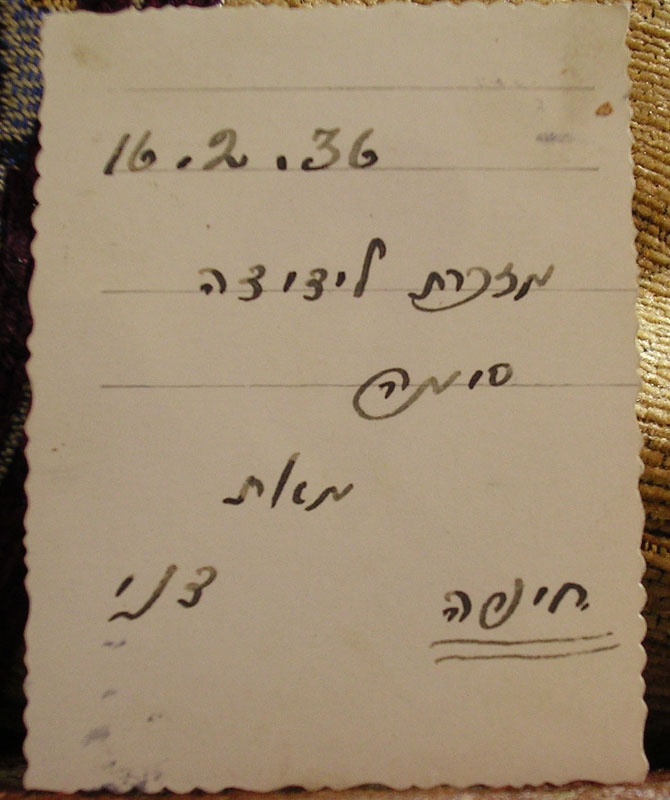 16.2.36
מזכרת לידידה
סימה
מאת
חיפה דני